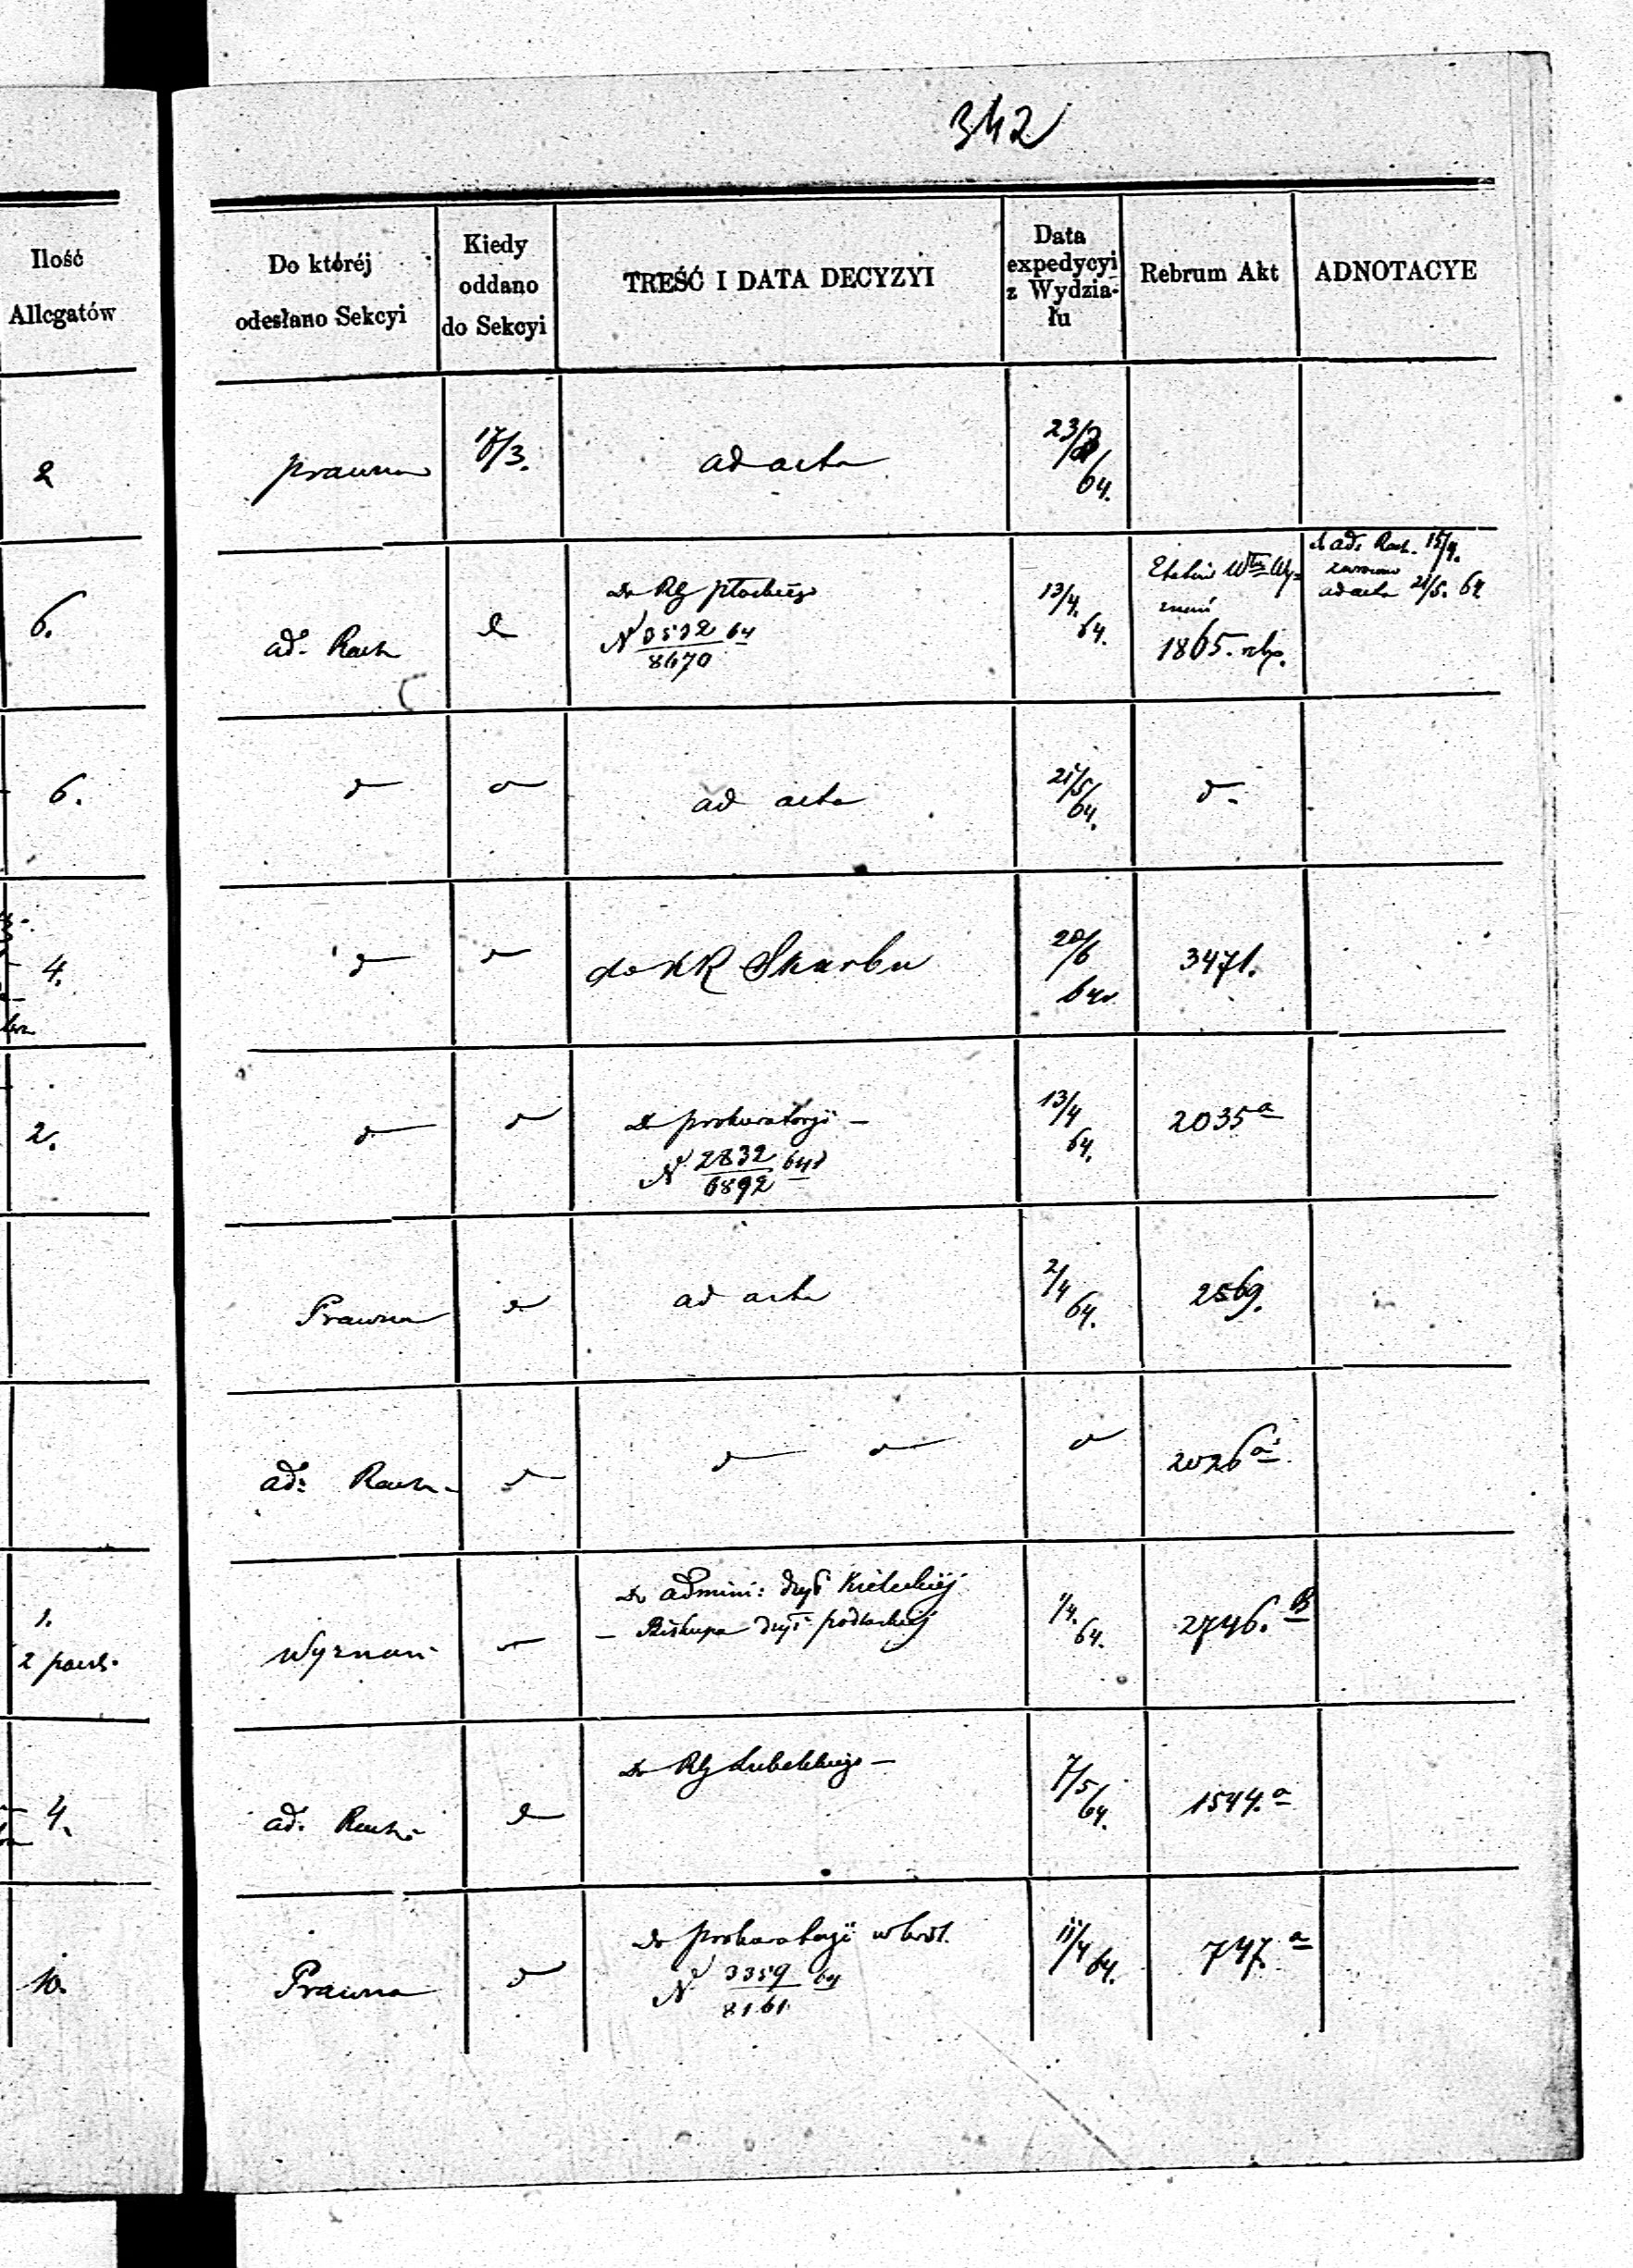 342
Ilość
Allegatów
Do któréj
odesłano Sekcyi
Kiedy
oddano
do Sekcyi
TREŚĆ I DATA DECYZYI
Data
expedycyi
z Wydzia-
łu
Rebrum Akt
ADNOTACYE
2
prawna
17/3.
ad acta
23/3
64.
6.
ad. Rach
Do RG płockiego
N 3532 64
8670
13/4.
64.
1865.
ad. Rach. 15/4.
ad acta 21/5. 64
6.
d
d
ad acta
21/5
64.
d.
4.
d
d
do KR Skarbu
20/6
64
3471.
2.
d
d
Do prokuratoryi –
N 2832 64
6892
13/4
64.
2035 a
Prawna
d
ad acta
2/4
64.
2569.
ad: Rach.
d
d d
d
2026 a
1.
2 paczk.
Wyznań
Do admini: dyec Kieleckiéj
– Biskupa dyec podlaskiéj
1/4.
64.
2746. B
4.
ad. Rach.
d
Do RG Lubelskiego –
7/5
64.
1544. a
10.
Prawna
d
Do prokuratoryi w Król.
N 3359 64
8161
11/4 64.
747. a